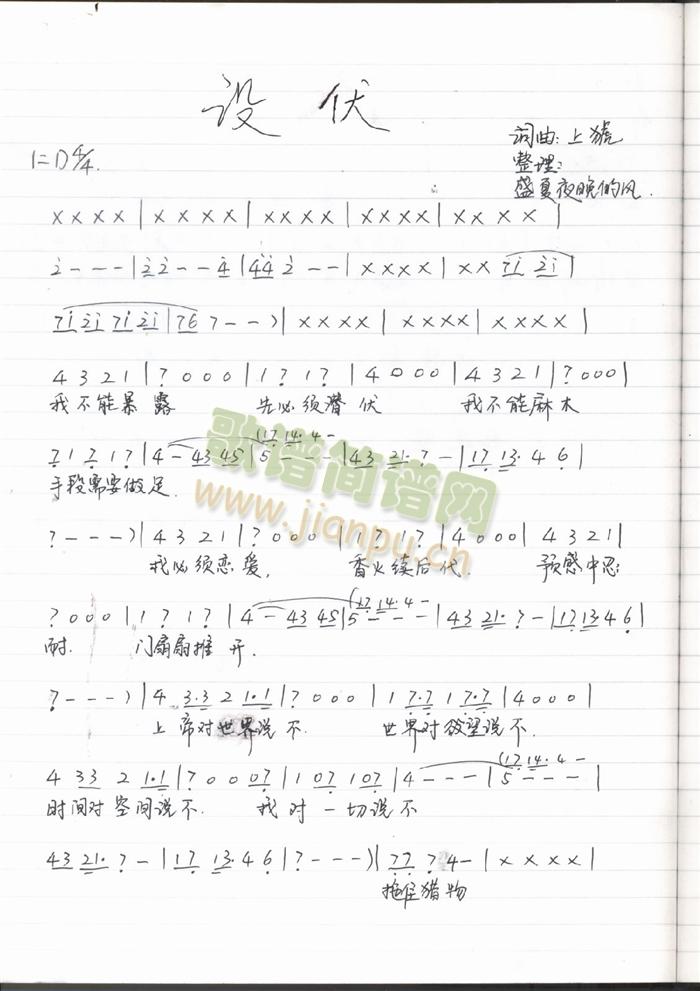 设 伏
1=D 4/4.
词曲:上猇
整理:
盛夏夜晚的风.
x x x x | x x x x | x x x x | x x x x | x x x x |
2̇ - - - | 2̇ 2̇ 2̇ - - 4̇ | 4̇ 4̇ 2̇ - - | x x x x | x x 7 1̇ 2̇ 1̇ |
7 1̇ 2̇ 1̇ 7 1̇ 2̇ 1̇ | 7 6 7 - - ) | x x x x | x x x x | x x x x |
4 3 2 1 | 7̣ 0 0 0 | 1 7̣ 1 7̣ | 4 0 0 0 | 4 3 2 1 | 7̣ 0 0 0 |
我不能暴露 先必须潜伏 我不能麻木
7̣ 1 7̣ 1 7̣ | 4 - 4 3 4 5 | 5 - - - | 4 3 2 1 · 7̣ - | 1 7̣ 1 3 · 4 6̣ |
(1 7̣ 1 4 · 4 -
手段需要做足.
歌谱简谱网
www.jianpu.cn
7̣ - - - ) | 4 3 2 1 | 7̣ 0 0 0 | 1 7̣ 1 7̣ | 4 0 0 0 | 4 3 2 1 |
我必须恋爱, 香火续后代. 预感中忍
7̣ 0 0 0 | 1 7̣ 1 7̣ | 4 - 4 3 4 5 | 5 - - - | 4 3 2 1 · 7̣ - | 1 7̣ 1 3 · 4 6̣ |
(1 7̣ 1 4 · 4 -
耐. 门扇扇推开.
7̣ - - - ) | 4 3 · 3 2 1 · 1 | 7̣ 0 0 0 | 1 7̣ · 7̣ 1 7̣ · 7̣ | 4 0 0 0 |
上帝对世界说不. 世界对欲望说不.
4 3 3 2 1 · 1 | 7̣ 0 0 0 7̣ | 1 0 7̣ 1 0 7̣ | 4 - - - | 5 - - - |
(1 7̣ 1 4 · 4 -
时间对空间说不. 我对一切说不
4 3 2 1 · 7̣ - | 1 7̣ 1 3 · 4 6̣ | 7̣ - - - ) | 7̣ 7̣ 7̣ 4 - | x x x x |
拖住猎物